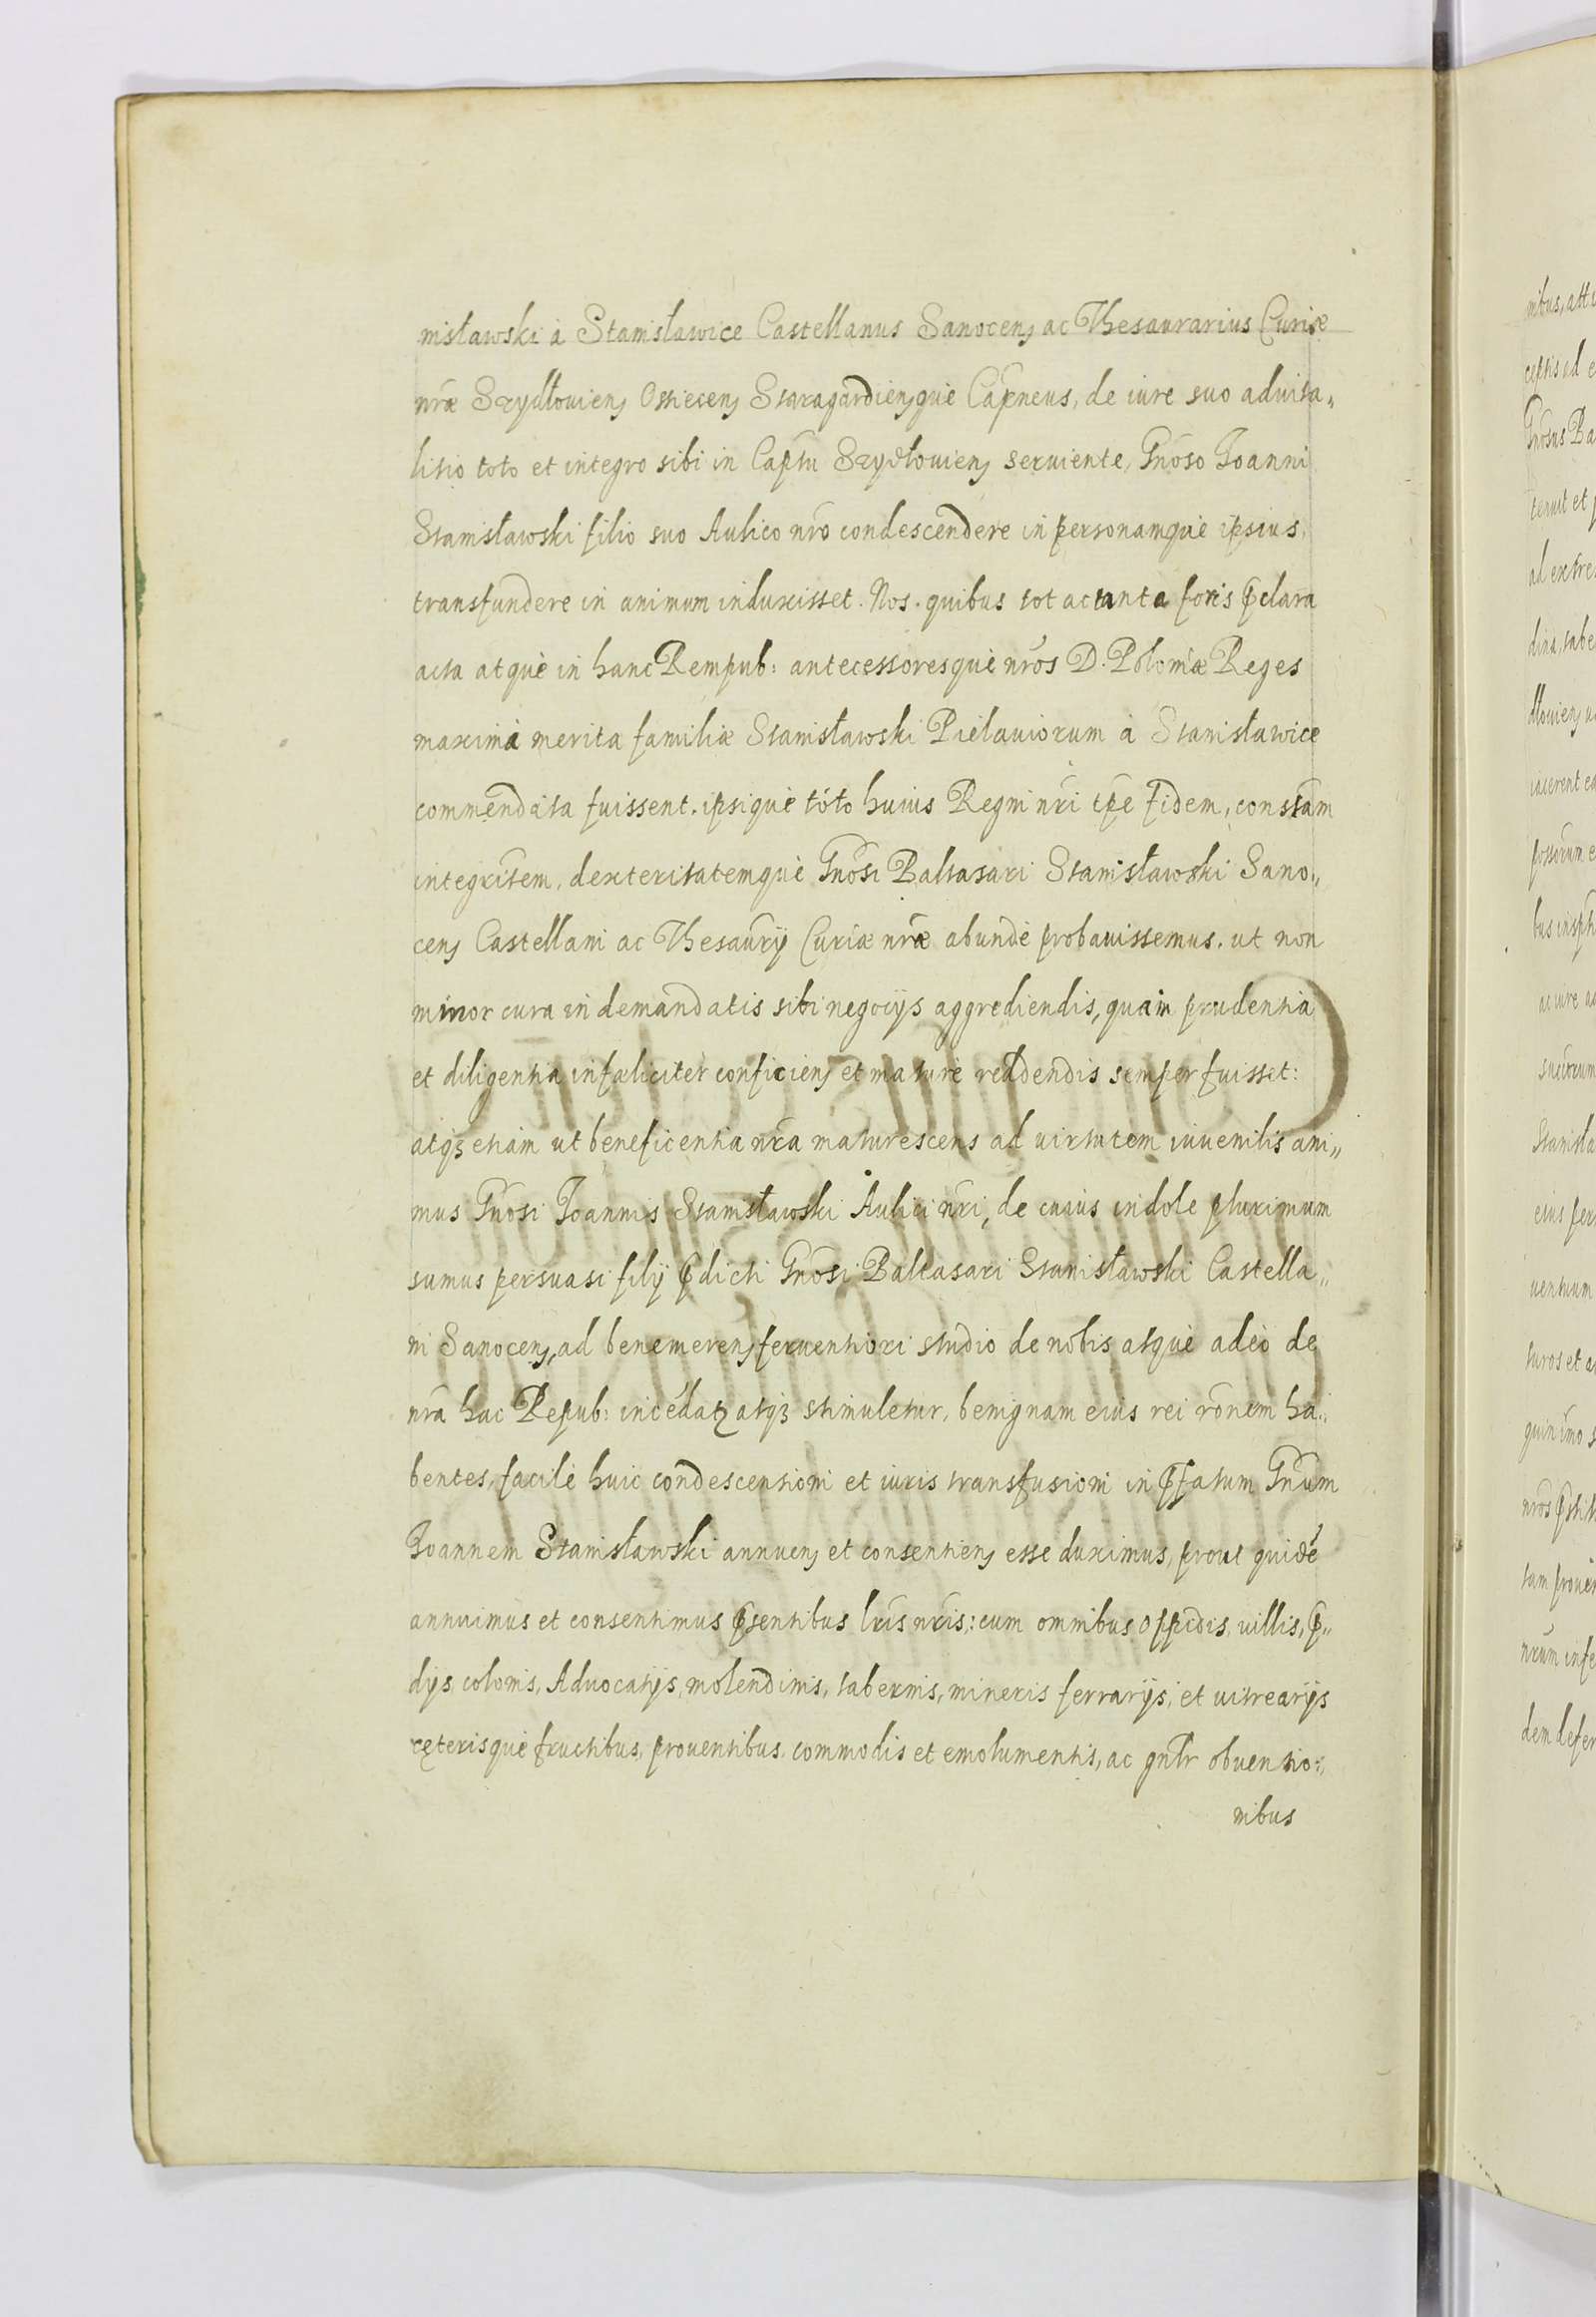 nisławski à Stanisławice Castellanus Sanocen̄ ac Thesaurarius Curiæ
nr̄æ Szydłouien̄ Osiecen̄ Staragardien̄què Cap̄neus, de iure suo aduita„
litio toto et integro sibi in Cap̄tu Szydłouien̄ seruiente, Gn̄oso Joanni
Stanisławski filio suo Aulico nr̄o condescendere in personamquè ipsius,
transfundere in animum induxisset. Nos. quibus tot ac tanta foris p̄clara
acta atquè in hanc Rempub: antecessoresquè nr̄os D. Poloniæ Reges
maximà merita familiæ Stanisławski Pielauiorum à Stanisławice
commendata fuissent. ipsiquè tóto huius Regni nr̄i tp̄e fidem, constam̄
integritem̄, dexteritatemquè Gn̄osi Baltasari Stanisławski Sano„
cen̄ Castellani ac Thesaur̄ij Curiæ nr̄æ abundè probauissemus. ut non
minor cura in demandatis sibi negocijs aggrediendis, quàm prudentia
et diligentia in fæliciter conficien̄ et maturè reddendis semper fuisset:
atq₃ etiam ut beneficentia nr̄a maturescens ad uirtutem iuuenilis ani„
mus Gn̄osi Joannis Stanisławski Aulici nr̄i, de cuius indole plurimum
sumus persuasi filij p̄dicti Gn̄osi Baltasari Stanisławski Castella„
ni Sanocen̄, ad benemeren̄ feruentiori studio de nobis atquè adeò de
nr̄a hac Repub: incēdat₂ atq₃ stimuletur, benignam eius rei ron̄em ha„
bentes, facilè huic condescensioni et iuris transfusioni in p̄fatum Gn̄um
Joannem Stanisławski annuen̄ et consentien̄ esse duximus, prout quidē
annuimus et consentimus p̄sentibus lr̄is nr̄is: cum omnibus oppidis, uillis, p̄„
dijs, colonis, Aduocatijs, molendinis, tabernis, mineris ferrarijs, et uitrearijs
cęterisquè fructibus, prouentibus, commodis et emolumentis, ac gn̄lr obuentio„
nibus